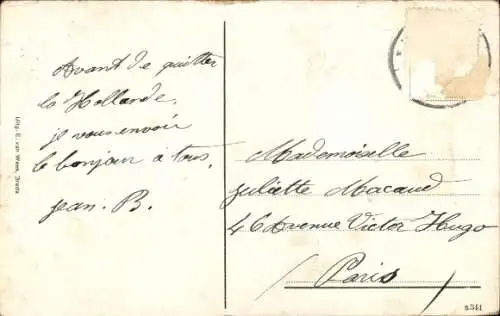 Avant de quitter
la Hollande,
je vous envoie
le bonjour à tous,
Jean. B.
Mademoiselle
Juliette Macaud
46 Avenue Victor Hugo
Paris
Uitg. E. van Wees, Breda